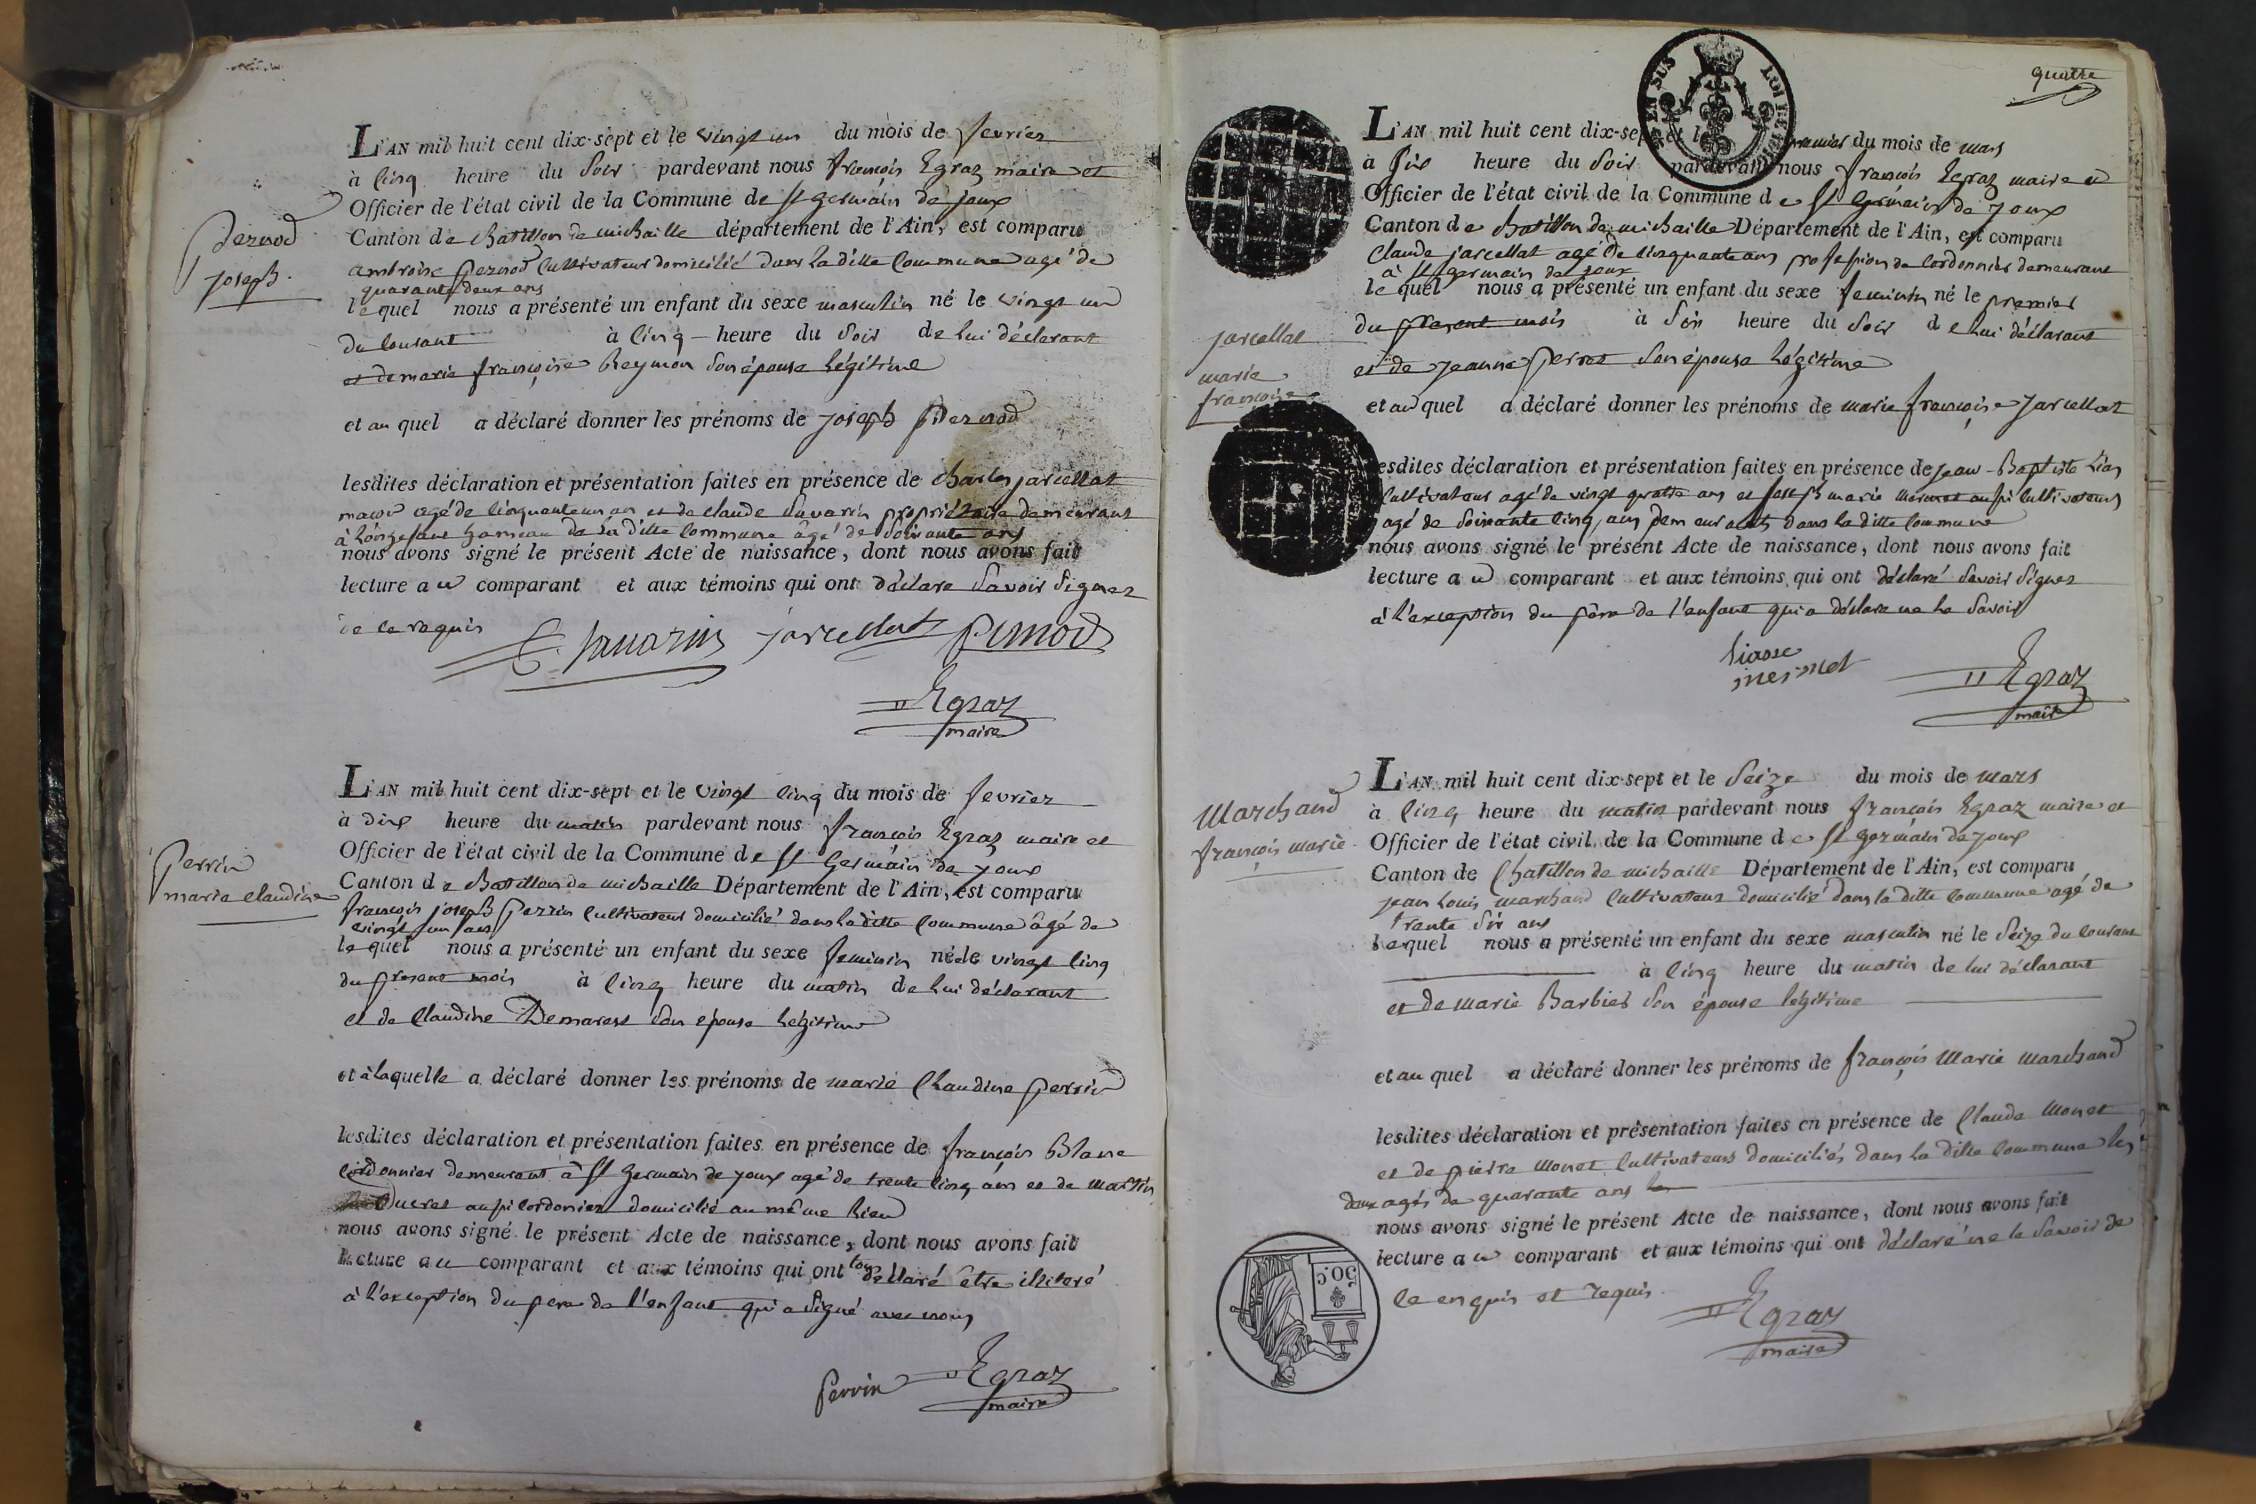 Pernod
Joseph.
L'AN mil huit cent dix-sept et le vingt un du mois de fevrier
à cinq heure du soir pardevant nous françois Egraz maire et
Officier de l'état civil de la Commune de St germain de joux
Canton de chatillon de michaille département de l'Ain, est comparu
ambroise Pernod Cultivateur domicilié dans la ditte Commune agé de
quarante deux ans
lequel nous a présenté un enfant du sexe masculin né le vingt un
du courant à cinq heure du soir de lui déclarant
et de marie françoise Reymon son épouse légitime
et au quel a déclaré donner les prénoms de joseph Pernod
lesdites déclaration et présentation faites en présence de charles jarcellat
agé de cinquante un an et de claude Savarin propriétaire demeurant
à hameau de la ditte Commune âgé de soixante ans
nous avons signé le présent Acte de naissance, dont nous avons fait
lecture au comparant et aux témoins qui ont déclaré savoir signer
de ce requis
C. Savarin jarcellat Pernod
Egraz
maire
Perrin
marie claudine
L'AN mil huit cent dix-sept et le vingt cinq du mois de fevrier
à dix heure du matin pardevant nous françois Egraz maire et
Officier de l'état civil de la Commune de St germain de joux
Canton de chatillon de michaille Département de l'Ain, est comparu
françois joseph Perrin Cultivateur domicilié dans la ditte Commune âgé de
vingt un ans
lequel nous a présenté un enfant du sexe feminin née le vingt cinq
du present mois à cinq heure du matin de lui déclarant
et de Claudine Demarest son epouse légitime
et à laquelle a déclaré donner les prénoms de marie Claudine Perrin
lesdites déclaration et présentation faites en présence de françois Blanc
cordonnier demeurant à St germain de joux agé de trente cinq ans et de martin
Ducret aussi cordonier domicilié au même lieu
nous avons signé le présent Acte de naissance, dont nous avons fait
lecture au comparant et aux témoins qui ont tous déclaré être illiteré
à l'exception du pere de l'enfant qui a signé avec nous
Perrin Egraz
maire
quatre
jarcellat
marie
françoise
L'AN mil huit cent dix-sept et le premier du mois de mars
à six heure du soir pardevant nous françois Egraz maire et
Officier de l'état civil de la Commune de St germain de joux
Canton de chatillon de michaille Département de l'Ain, est comparu
Claude jarcellat agé de cinquante ans profession de cordonnier demeurant
à St germain de joux
lequel nous a présenté un enfant du sexe feminin né le premier
du present mois à six heure du soir de lui déclarant
et de jeanne Perrot son épouse légitime
et au quel a déclaré donner les prénoms de marie françoise jarcellat
lesdites déclaration et présentation faites en présence de jean-Baptiste
Cultivateur agé de vingt quatre ans et joseph marie mermet aussi cultivateur
agé de soixante cinq ans demeurants dans la ditte Commune
nous avons signé le présent Acte de naissance, dont nous avons fait
lecture au comparant et aux témoins qui ont déclaré savoir signer
à l'exception du père de l'enfant qui a déclaré ne le savoir
mermet Egraz
maire
Marchand
françois marie
L'AN mil huit cent dix-sept et le seize du mois de mars
à cinq heure du matin pardevant nous françois Egraz maire et
Officier de l'état civil de la Commune de St germain de joux
Canton de Chatillon de michaille Département de l'Ain, est comparu
jean louis marchand Cultivateur domicilié dans la ditte Commune agé de
trente six ans
lequel nous a présenté un enfant du sexe masculin né le seize du courant
à cinq heure du matin de lui déclarant
et de marie Barbier son épouse légitime
et au quel a déclaré donner les prénoms de françois Marie marchand
lesdites déclaration et présentation faites en présence de Claude monet
et de pierre monet Cultivateurs domiciliés dans la ditte Commune les
deux agés de quarante ans
nous avons signé le présent Acte de naissance, dont nous avons fait
lecture au comparant et aux témoins qui ont déclaré ne le savoir de
ce enquis et requis.
Egraz
maire
50 c.